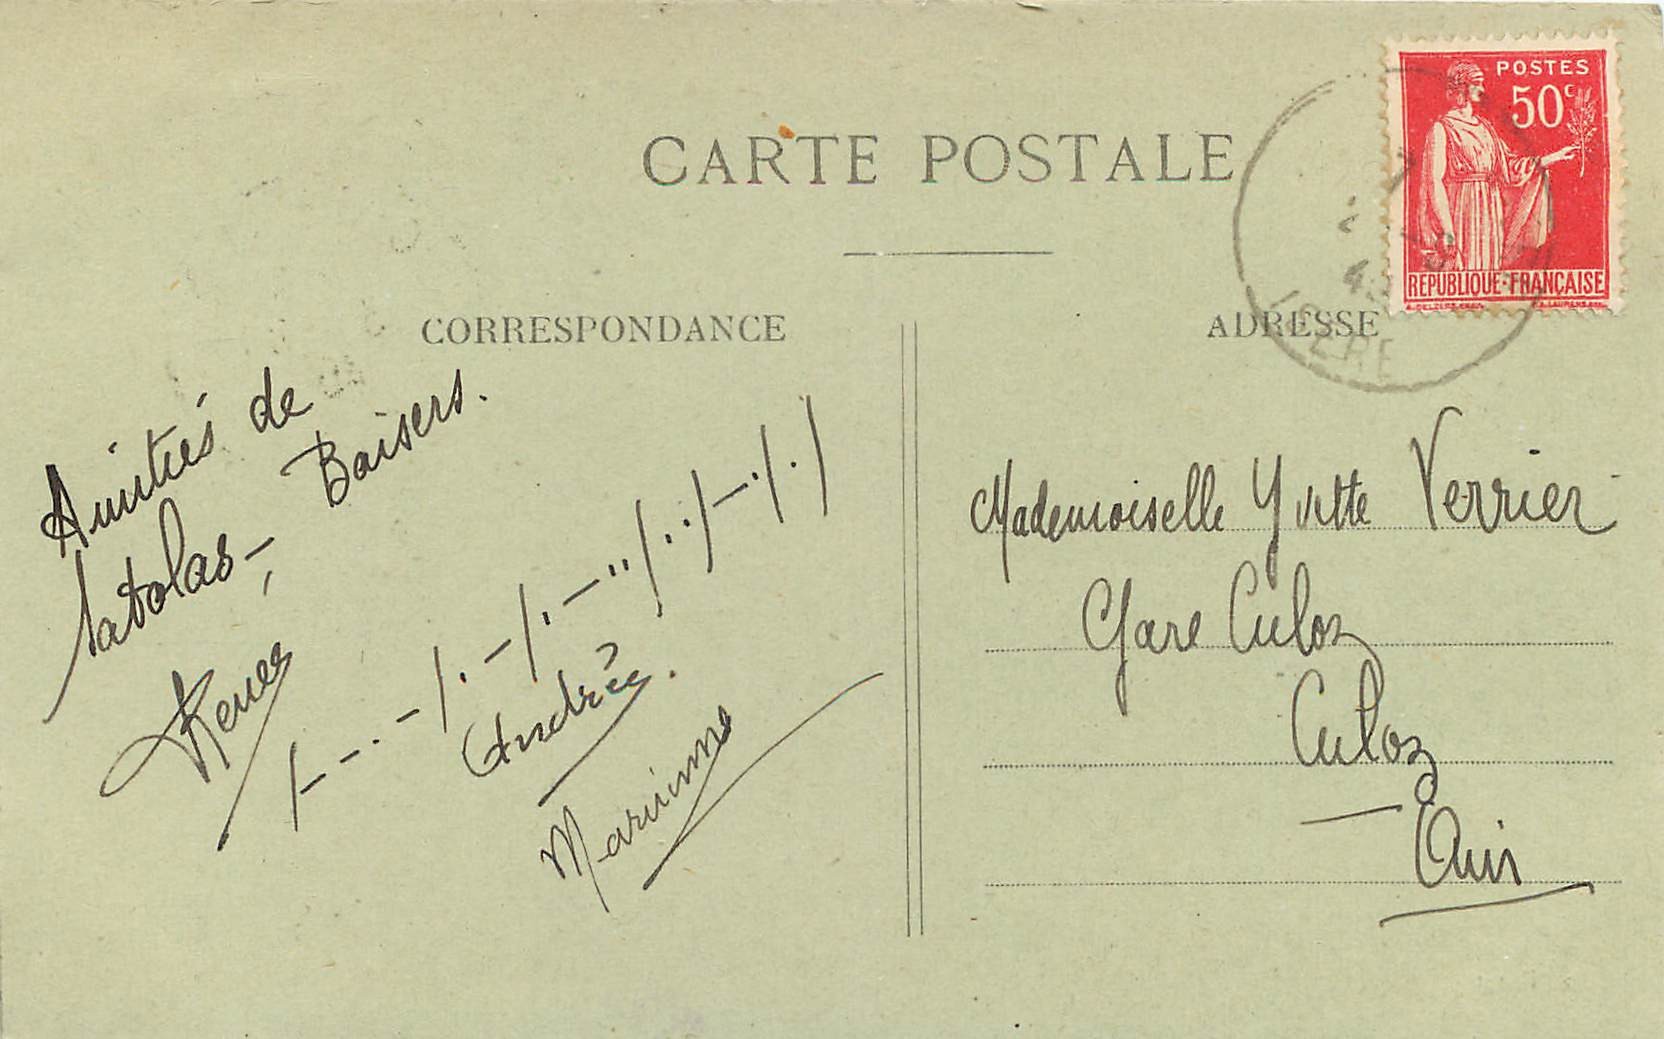 CARTE POSTALE
POSTES
50c
REPUBLIQUE-FRANÇAISE
ISÈRE
CORRESPONDANCE
ADRESSE
Amitiés de
Satolas-, Baisers.
Renée
Andrée.
Marianne
Mademoiselle Yvette Verrier
Gare Culoz
Culoz
Ain